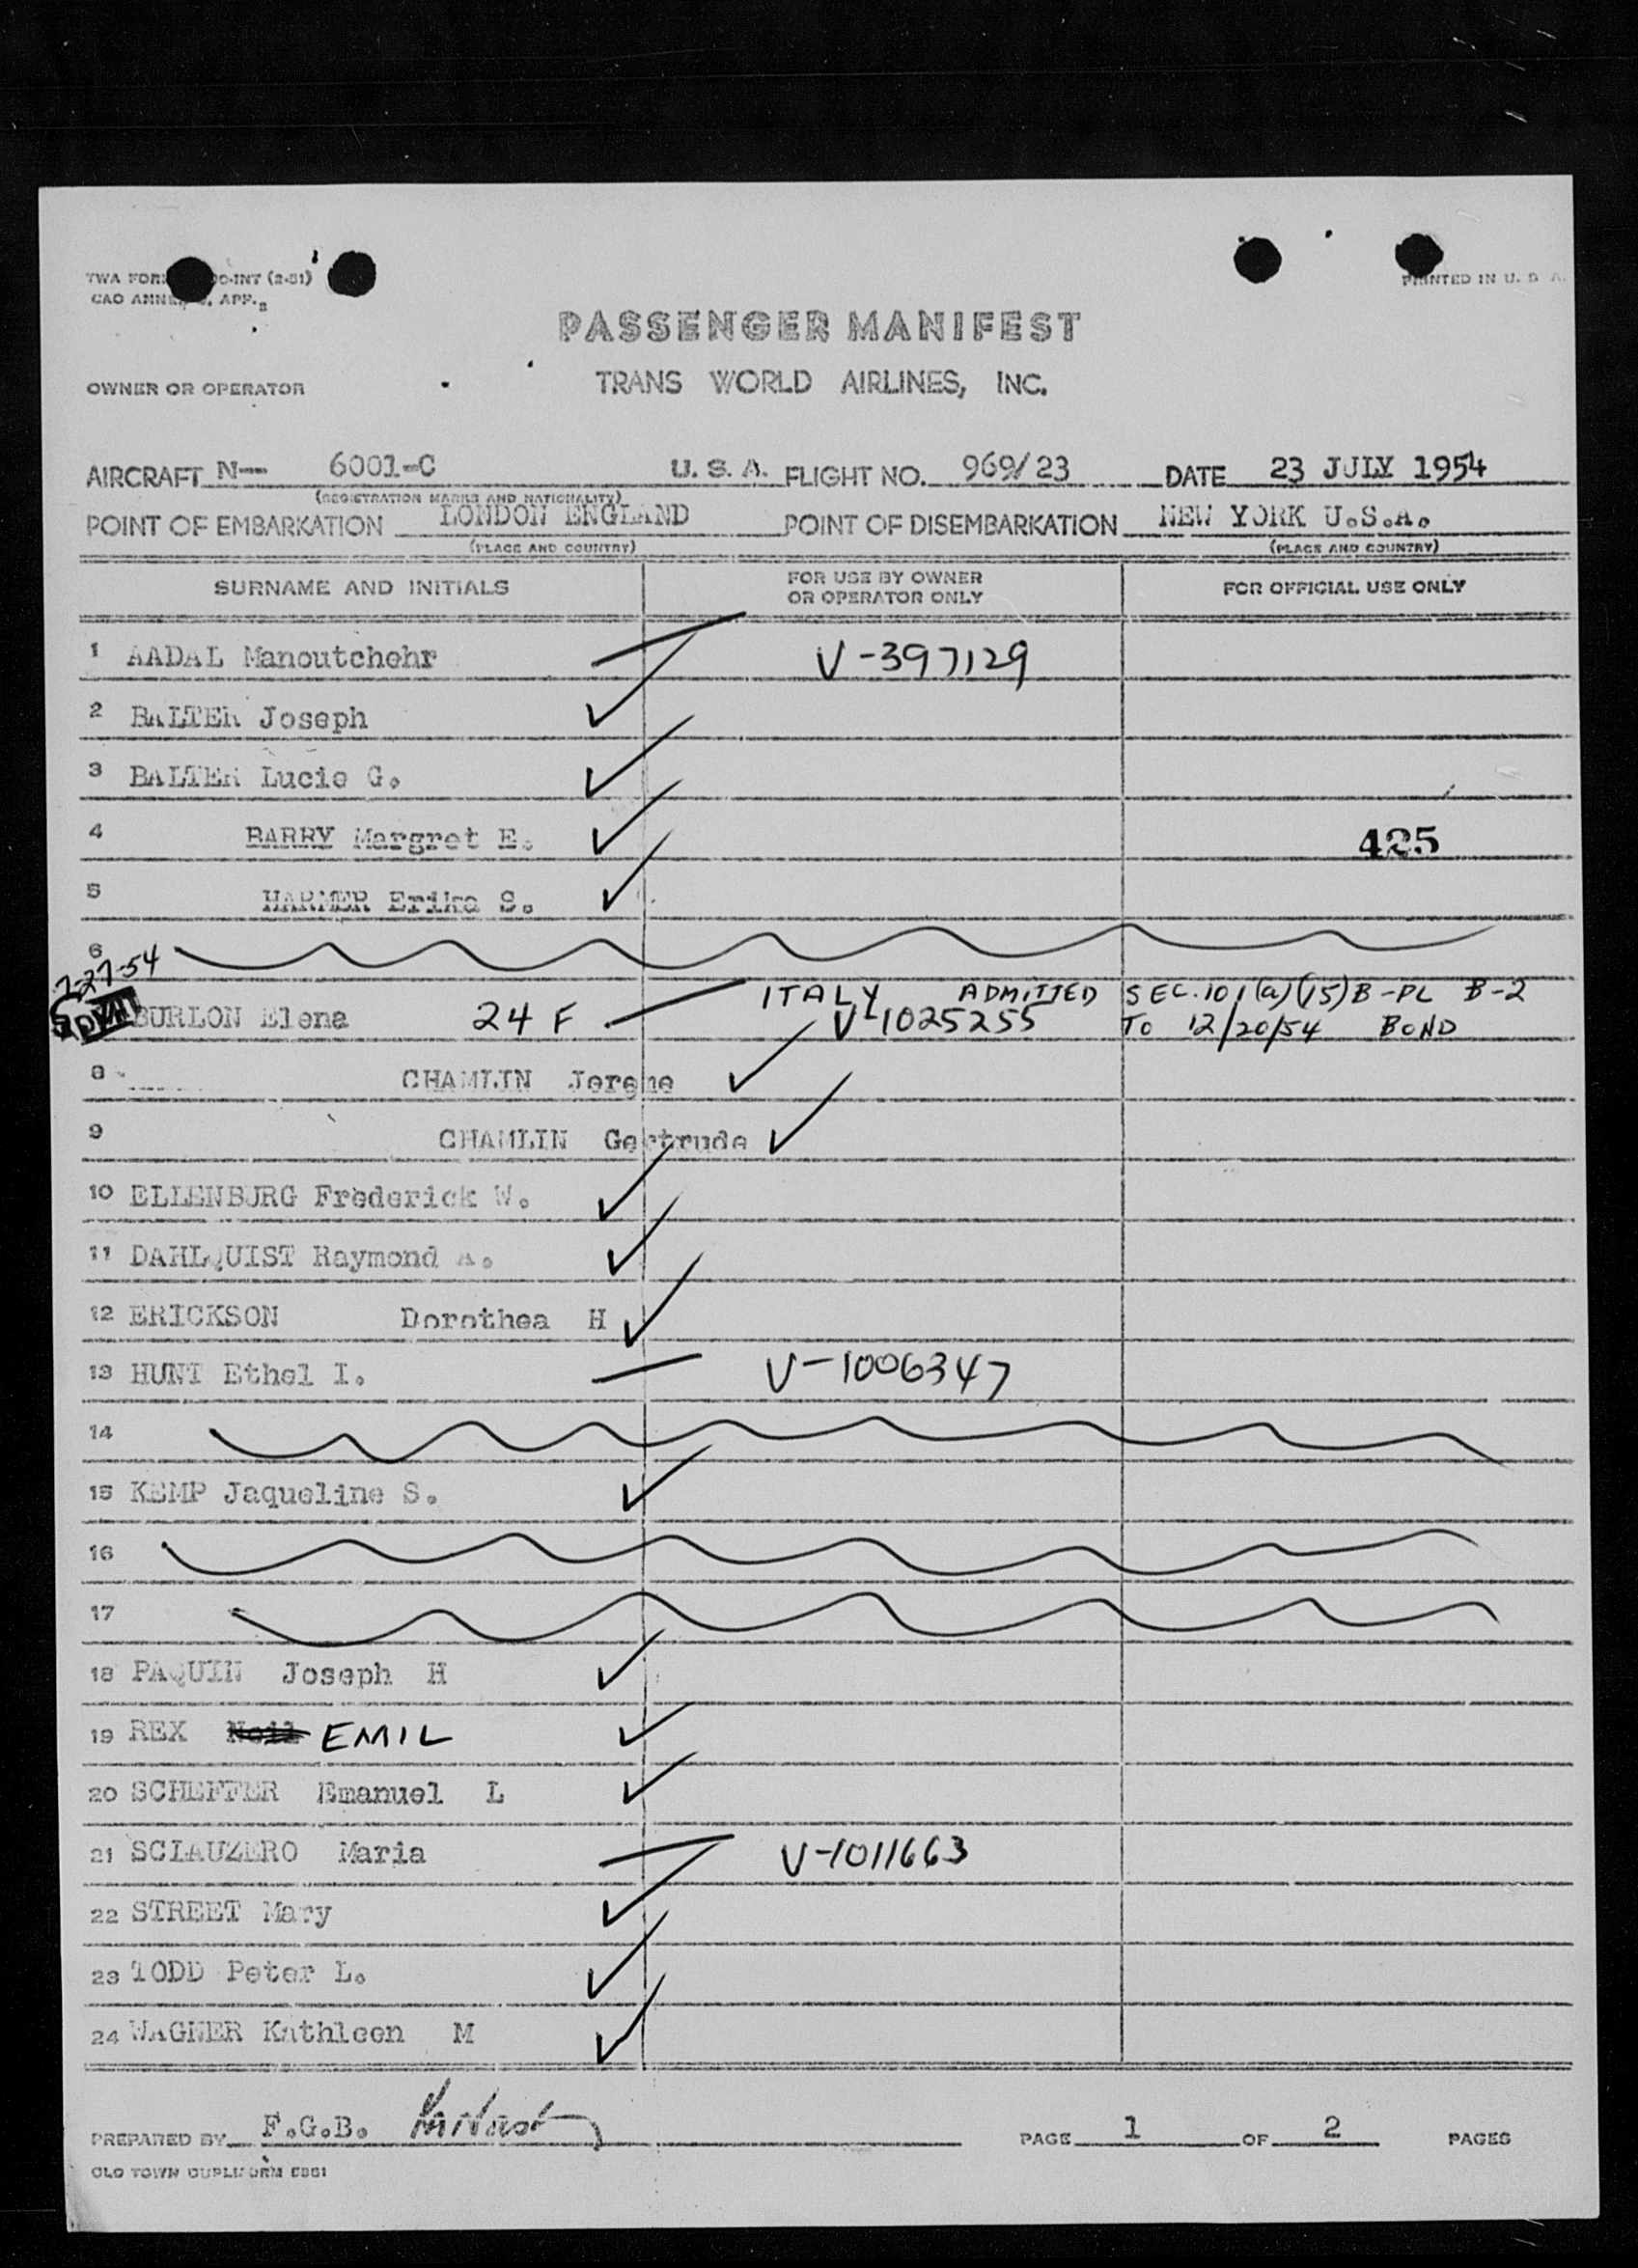 TWA FOR -INT (2-51)
PRINTED IN U. S. A.
APP.
PASSENGER MANIFEST
OWNER OR OPERATOR TRANS WORLD AIRLINES, INC.
AIRCRAFT N-- 6001-C U. S. A. FLIGHT NO. 969/23 DATE 23 JULY 1954
(REGISTRATION MARKS AND NATIONALITY)
POINT OF EMBARKATION LONDON ENGLAND POINT OF DISEMBARKATION NEW YORK U.S.A.
(PLACE AND COUNTRY) (PLACE AND COUNTRY)
SURNAME AND INITIALS FOR USE BY OWNER OR OPERATOR ONLY FOR OFFICIAL USE ONLY
1 AADAL Manoutchehr V-397129
2 BALTER Joseph
3 BALTER Lucie G.
4 BARRY Margret E. 425
5 HARMER Erika S.
6
7-27-54
BURLON Elena 24 F ITALY ADMITTED SEC.101(a)(15)B-PL B-2
V-1025255 TO 12/20/54 BOND
8 CHAMLIN Jerome
9 CHAMLIN Gertrude
10 ELLENBURG Frederick W.
11 DAHLQUIST Raymond A.
12 ERICKSON Dorothea H
13 HUNT Ethel I. V-1006347
14
15 KEMP Jaqueline S.
16
17
18 PAQUIN Joseph H
19 REX Neil EMIL
20 SCHEFFER Emanuel L
21 SCLAUZERO Maria V-1011663
22 STREET Mary
23 TODD Peter L.
24 WAGNER Kathleen M
PREPARED BY F.G.B. PAGE 1 OF 2 PAGES
OLD TOWN